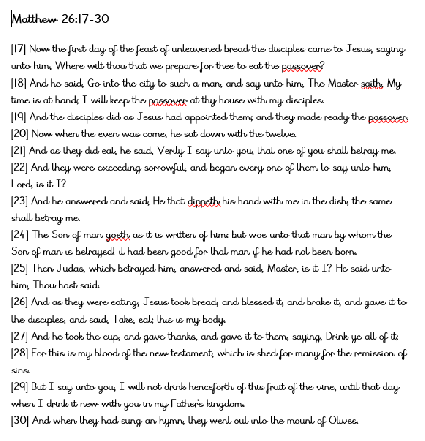 Matthew 26:17-30
[17] Now the first day of the feast of unleavened bread the disciples came to Jesus, saying
unto him, Where wilt thou that we prepare for thee to eat the passover?
[18] And he said, Go into the city to such a man, and say unto him, The Master saith, My
time is at hand; I will keep the passover at thy house with my disciples.
[19] And the disciples did as Jesus had appointed them; and they made ready the passover.
[20] Now when the even was come, he sat down with the twelve.
[21] And as they did eat, he said, Verily I say unto you, that one of you shall betray me.
[22] And they were exceeding sorrowful, and began every one of them to say unto him,
Lord, is it I?
[23] And he answered and said, He that dippeth his hand with me in the dish, the same
shall betray me.
[24] The Son of man goeth as it is written of him: but woe unto that man by whom the
Son of man is betrayed! it had been good for that man if he had not been born.
[25] Then Judas, which betrayed him, answered and said, Master, is it I? He said unto
him, Thou hast said.
[26] And as they were eating, Jesus took bread, and blessed it, and brake it, and gave it to
the disciples, and said, Take, eat; this is my body.
[27] And he took the cup, and gave thanks, and gave it to them, saying, Drink ye all of it;
[28] For this is my blood of the new testament, which is shed for many for the remission of
sins.
[29] But I say unto you, I will not drink henceforth of this fruit of the vine, until that day
when I drink it new with you in my Father's kingdom.
[30] And when they had sung an hymn, they went out into the mount of Olives.